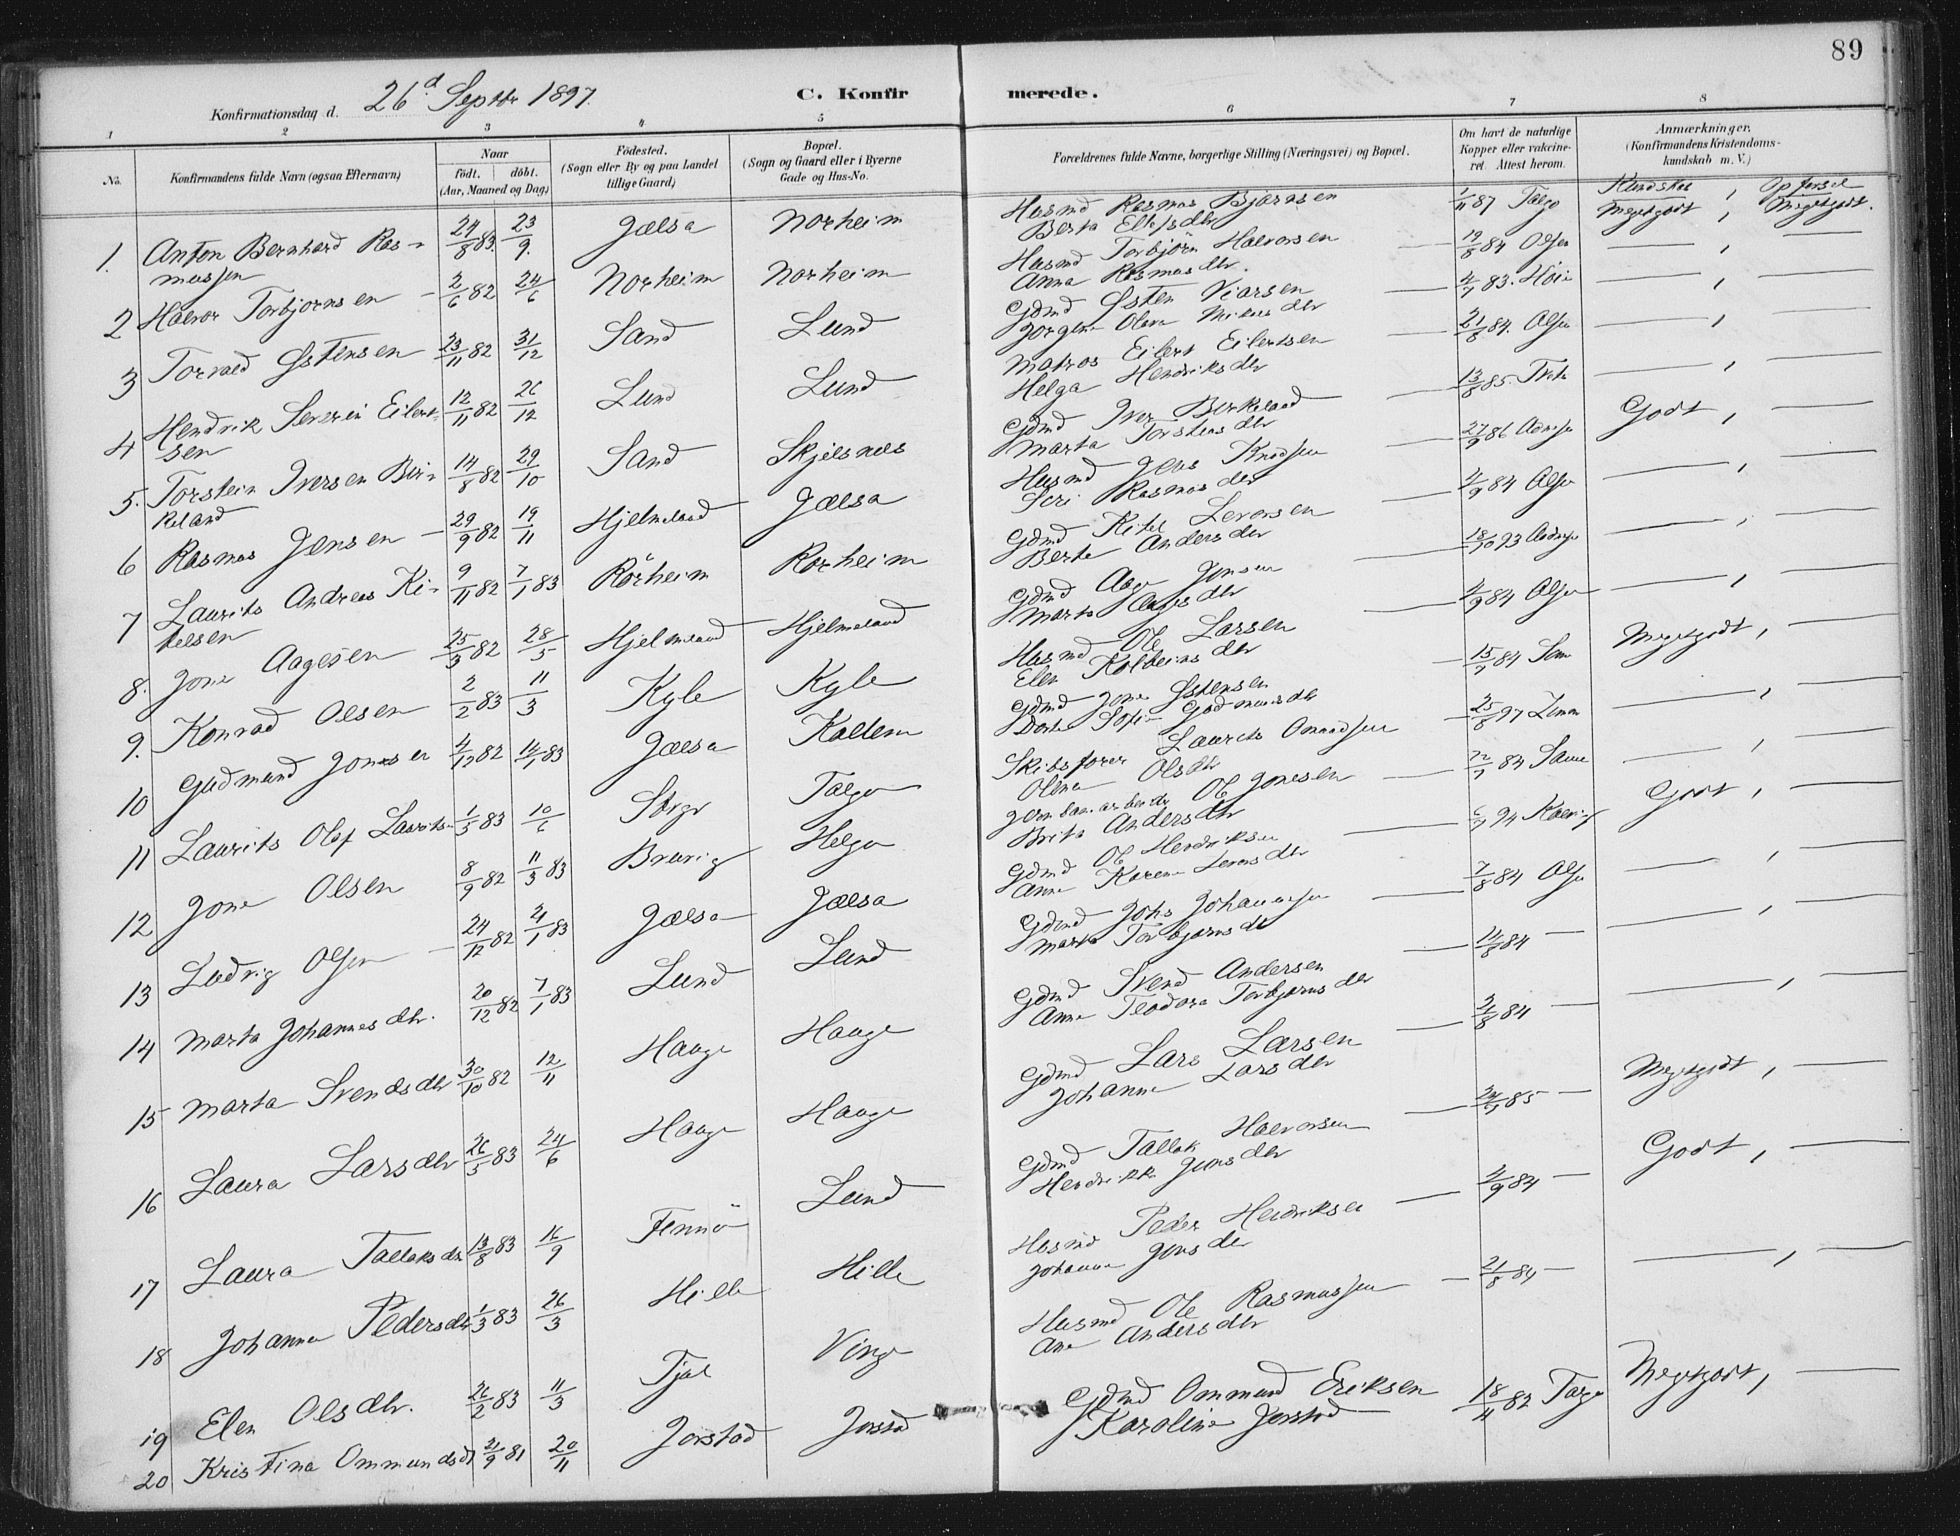 89
Konfirmationsdag d. 26d Septbr 1897.
C. Konfirmerede.
1 2 3 4 5 6 7 8
No.
Konfirmandens fulde Navn (ogsaa Efternavn)
Naar
födt. döbt.
(Aar, Maaned og Dag)
Födested.
(Sogn eller By og paa Landet
tillige Gaard)
Bopæl.
(Sogn og Gaard eller i Byerne
Gade og Hus-No.
Forældrenes fulde Navne, borgerlige Stilling (Næringsvei) og Bopæl.
Om havt de naturlige
Kopper eller vakcine-
ret. Attest herom.
Anmærkninger.
(Konfirmandens Kristendoms-
kundskab m. V.)
Kundskab, Opförsel
1. Anton Bernhard Ras- 24/8 83. 23/9. Jælsa Norheim Husmd Rasmus Bjørnsen 1/11 87 Talgø Megetgodt, Megetgodt.
mussen Berta Ellefsdtr
2 Halvor Torbjørnsen 2/6 82 24/6 Norheim Norheim Husmd Torbjörn Halvorsen 19/8 84 Olsen
Anna Rasmusdtr.
3 Torvald Østensen 23/11 82 31/12 Sand Lund Gdmd Østen Viarsen 4/7 83. Höie
Jorgine Olava
4 Hendrik Severin Eilert- 12/11 82 26/12 Lund Lund Matros Eilert Eilertsen 21/8 84. Olsen
sen Helga Hendriksdtr
5. Torstein Iversen Bir- 14/8 82 29/10 Sand Skjelsnes Gdmd Iver Birkeland 13/8 85.
keland Marta Torstensdtr
6 Rasmus Jensen 29/9 82 19/11 Hjelmeland Jælsa Husmd Jens Knudsen 27/9 86 Godt,
Siri Rasmusdtr
7 Laurits Andreas Ki- 9/11 82 7/1 83 Rörheim Rorheim Gdmd Kitel Levorsen 2/9 84 Olsen
telsen Berta Andersdtr
8. Jone Aagesen 25/3 82 28/5 Hjelmeland Hjelmeland Gdmd Aage Jonsen 18/10 93
Marta Aagesdtr
9. Konrad Olsen 2/2 83 11/3 Kyle Kyle Husmd Ole Larsen 2/9 84 Olsen
Elen Kolbeinsdtr
10 Gudmund Jonesen 4/12 82 14/1 83 Jælsa Gdmd Jone Østensen 15/7 84 Megetgodt,
Dorte Sofie Gudmunsdtr
11 Laurits Olaf Laurits- 1/5 83 10/6 Talgø Skibsförer Laurits Omundsen 25/8 97
Olina Olsdtr
12 Jone Olsen 8/9 82 11/3 83 Helgø Jernbanearbeider Ole Jonesen 84
Brita Andersdtr
13 Ludvig Olsen 24/12 82 21/1 83 Jælsa Jælsa Gdmd Ole Hendriksen 94 Godt,
Anne Karene Levorsdtr
14 Marta Johannesdtr. 20/12 82 7/1 83 Lund Lund Gdmd Johs Johannesen 7/8 84 Olsen
Marta Torbjørnsdtr
15 Marta Svendsdtr 30/10 82 12/11 Hauge Hauge Gdmd Svend Andersen 84
Anne Teodora Torbjørnsdtr
16 Laura Larsdtr 26/5 83 24/6 Hauge Hauge Gdmd Lars Larsen 84
Johanne Larsdtr
17 Laura Tallaksdtr 13/8 83 16/9 Finnö Lund Gdmd Tallak Halvorsen 85 Megetgodt,
Hendrikke Jonsdtr
18 Johanna Pedersdtr 1/3 83 26/3 Hille Hille Husmd Peder Hendriksen 2/9 84 Godt,
Johanne Jonsdtr
19 Elen Olsdtr. 26/2 83 11/3 Vinge Husmd Ole Rasmussen 21/8 84
Ane Andersdtr
20 Kristina Ommundsdt 2/9 81 20/11 Jorstad Jorstad Gdmd Ommund Eriksen 18/11 82 Talgø Megetgodt,
Karoline Jorstad